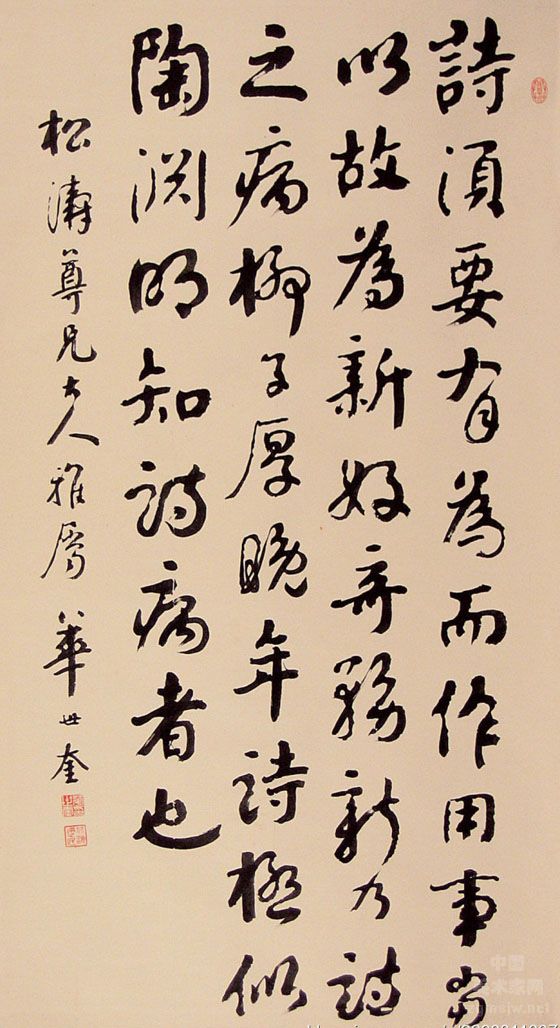 詩須要有為而作用事當
以故為新好奇務新乃詩
之病柳子厚晚年詩極似
陶渊明知詩病者也
松濤尊兄大人雅屬 華世奎
中国
美术家网